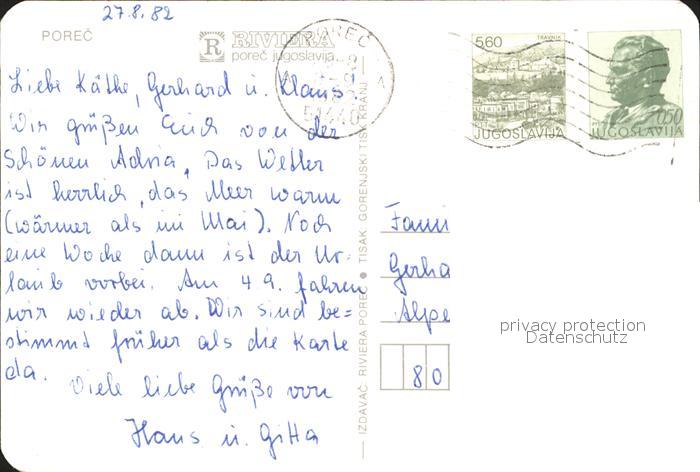 27.8.82
POREČ
R RIVIERA
poreč jugoslavija
POREČ
51440
A
5.60
TRAVNIK
JUGOSLAVIJA
0.50
JUGOSLAVIJA
Liebe Käthe, Gerhard u. Klaus
Wir grüßen Euch von der
Schönen Adria, Das Wetter
ist herrlich, das Meer warm
(wärmer als im Mai). Noch
eine Woche dann ist der Ur-
laub vorbei. Am 4.9. fahren
wir wieder ab. Wir sind be=
stimmt früher als die Karte
da.
Viele liebe Grüße von
Hans u. Gitta
IZDAVAČ RIVIERA POREČ ● TISAK GORENJSKI TISK KRANJ
Fami
Gerha
Alpe
80
privacy protection
Datenschutz